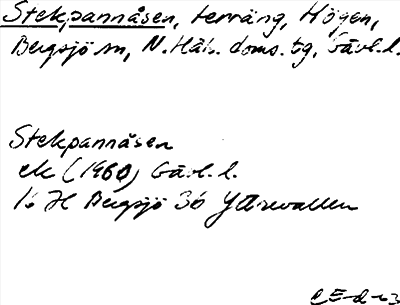 Stekpannåsen, terräng, Högen,
Bergsjö sn, N. Häls. doms. tg, Gävl. l.
Stekpannåsen
ek (1960) Gävl. l.
16 H Bergsjö 36 Yttrevallen